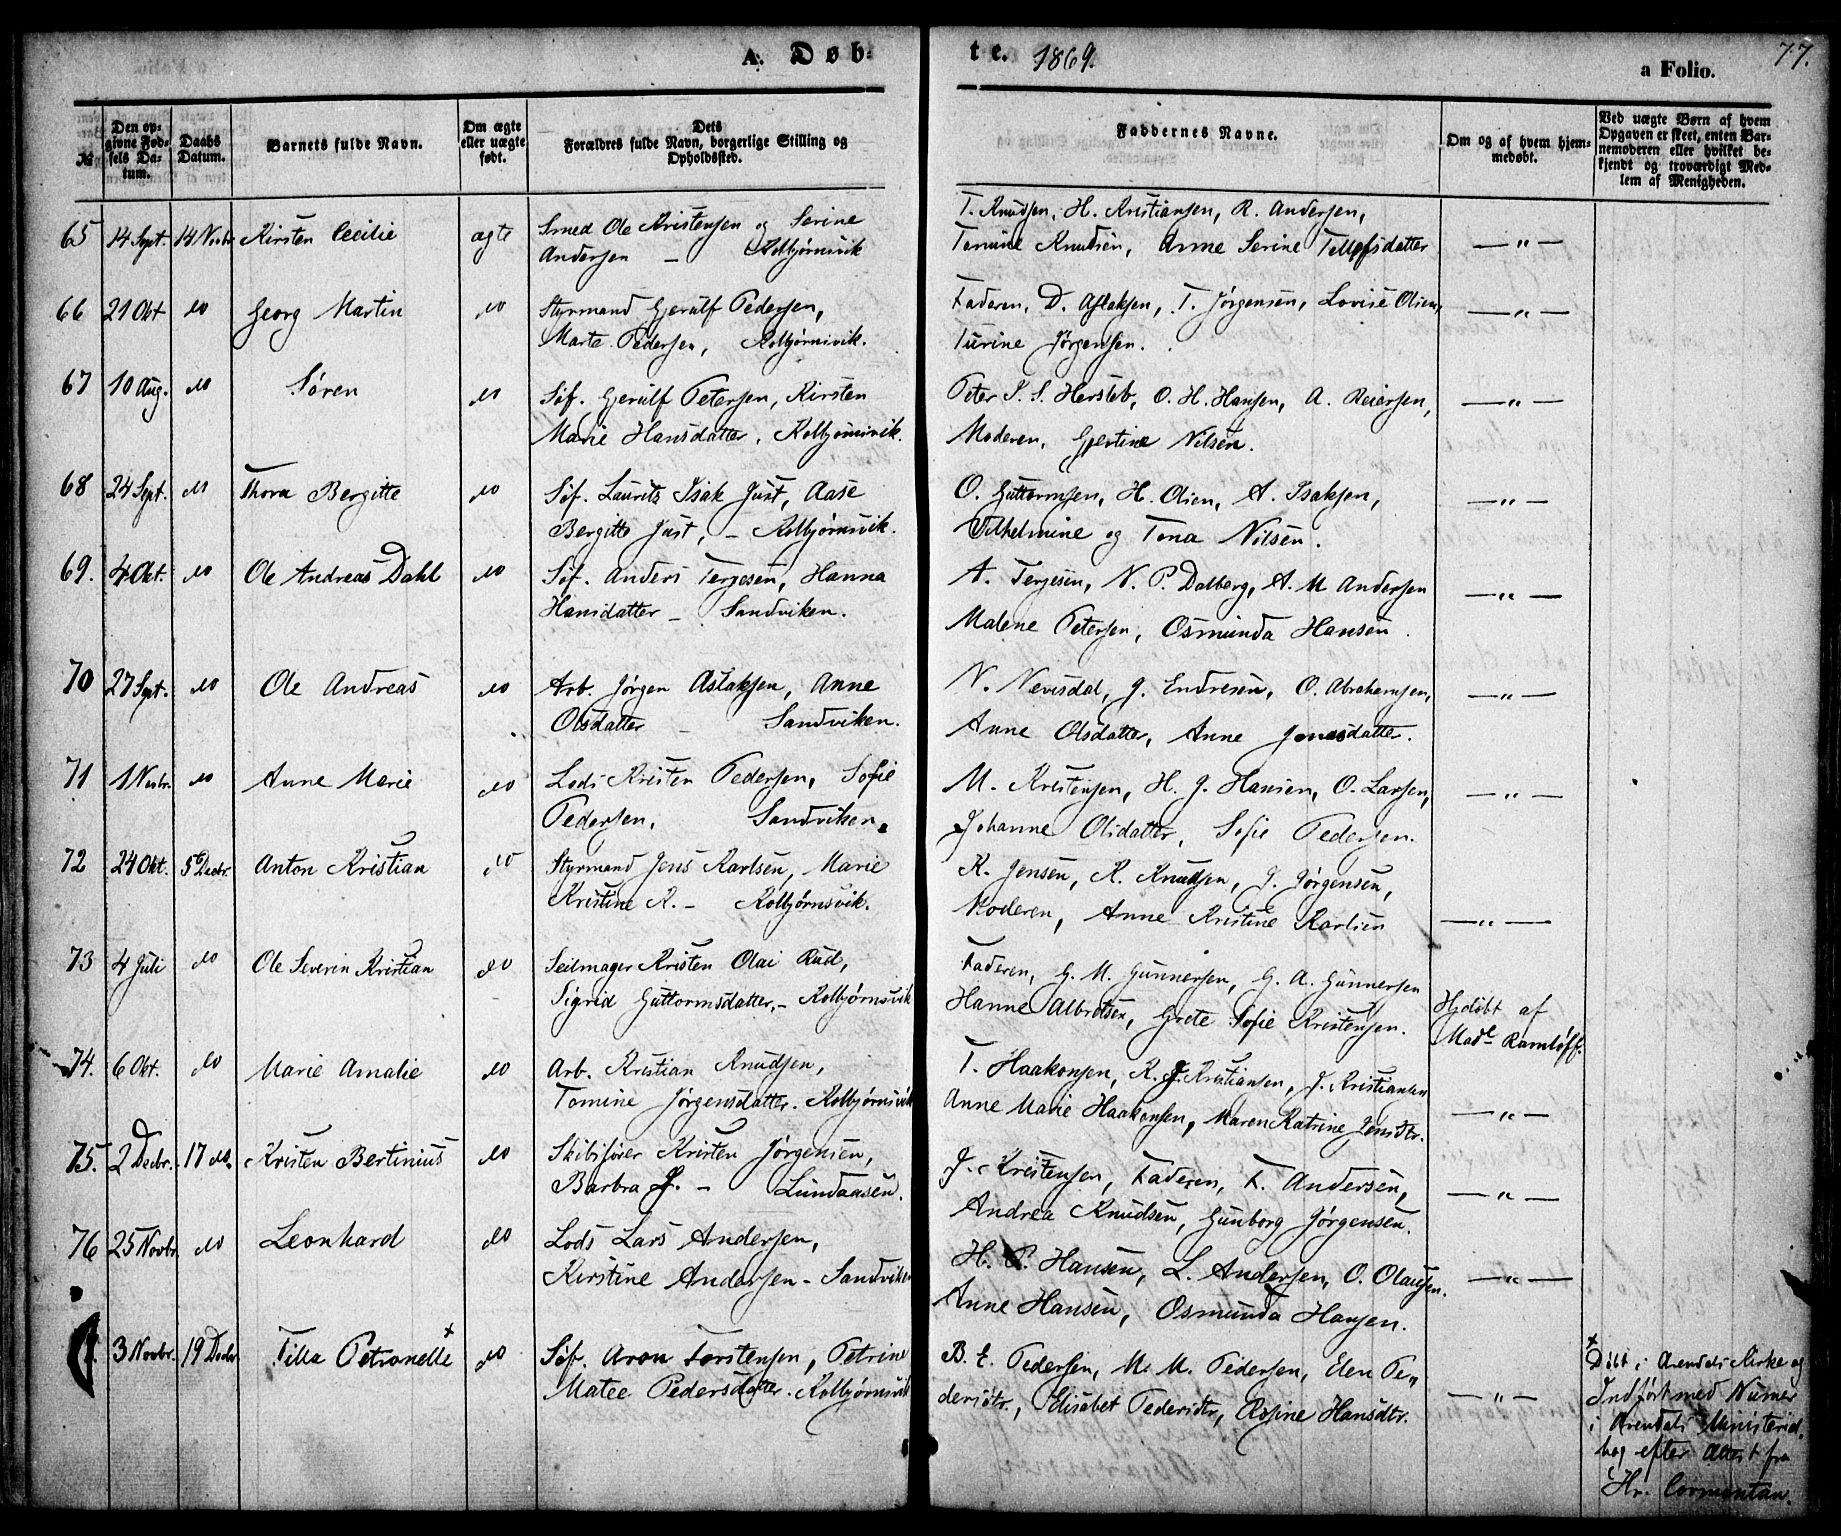 A. Døb-
te. 1869.
a Folio.
77.
№
Den op-
givne Fød-
sels Da-
tum.
Daabs
Datum.
Barnets fulde Navn.
Om ægte
eller uægte
født.
Dets
Forældres fulde Navn, borgerlige Stilling og
Opholdssted.
Faddernes Navne.
Om og af hvem hjem-
medøbt.
Ved uægte Børn af hvem
Opgaven er skeet, enten Bar-
nemoderen eller hvilket be-
kjendt og troværdigt Med-
lem af Menigheden.
65 14 Sept. 14 Novbr Kirsten Cecilie ægte Smed Ole Kristensen og Serine
Andersen – Kolbjørnsvik
T. Knudsen, H. Kristiansen, R. Andersen,
Tomine Knudsen, Anne Serine Tellefsdatter —"—
66 21 Okt do Georg Martin do Styrmand Gjerulf Pedersen,
Marte Pedersen, Kolbjørnsvik.
Faderen, D. Aslaksen, T. Jørgensen, Lovise Olsen,
Turine Jørgensen. —"—
67 10 Aug. do Søren do Søf. Gjerulf Petersen, Kirsten
Marie Hansdatter, Kolbjørnsvik.
Peter S. S. Hersleb, O. H. Hansen, A. Reiersen,
Moderen, Gjertine Nilsen. —"—
68 24 Sept. do Thora Bergitte do Søf. Laurits Isak Just, Aase
Bergitte Just, – Kolbjørnsvik.
O. Guttormsen, H. Olsen, A. Isaksen,
Vilhelmine og Tona Nilsen. —"—
69. 4 Okt. do Ole Andreas Dahl do Søf. Anders Terjesen, Hanna
Hansdatter – Sandviken.
A. Terjesen, N. P. Dalberg, A. M Andersen
Malene Petersen, Osmunda Hansen. —"—
70 27 Sept. do Ole Andreas do Arb. Jørgen Aslaksen, Anne
Olsdatter – Sandviken.
N. Nevesdal, J. Endresen, O. Abrahamsen,
Anne Olsdatter, Anne Jonasdatter. —"—
71 1 Novbr. do Anne Marie do Lods Kristen Pedersen, Sofie
Pedersen, Sandviken.
M. Kristensen, H. J. Hansen, O. Larsen,
Johanne Olsdatter, Sofie Pedersen. —"—
72 24 Okt. 5te Decbr. Anton Kristian do Styrmand Jens Karlsen, Marie
Kristine K. – Kolbjørnsvik.
K. Jensen, K. Knudsen, J. Jørgensen,
Moderen, Anne Kristine Karlsen —"—
73 4 Juli do Ole Severin Kristian do Seilmager Kristen Olai Rud,
Sigrid Guttormsdatter, – Kolbjørnsvik
Faderen, G. M. Gunnersen, G. A. Gunnersen
Hanne Albretsen, Grete Sofie Kristensen.
Hjdøbt af
Made Ramløff.
74. 6 Okt. do Marie Amalie do Arb. Kristian Knudsen,
Tomine Jørgensdatter. Kolbjørnsvik
T. Haakonsen, K. J. Kristiansen, J. Kristiansen
Anne Marie Haakonsen, Maren Katrine Jensdtr. —"—
75. 2 Decbr. 17 do. Kristen Bertinius do Skibsfører Kristen Jørgensen,
Barbra J. – Lundaasen.
J. Kristensen, Faderen, F. Andersen,
Andrea Knudsen, Gunborg Jørgensen. —"—
76 25 Novbr. do Leonhard do Lods Lars Andersen,
Kirstine Andersen – Sandviken
H. P. Hansen, L. Andersen, O. Olausen.
Anne Hansen, Osmunda Hansen. —"—
3 Novbr. 19 Decbr Tilla Petronelle + do Søf. Aron Torstensen, Petrine
Matee Pedersdatter. Kolbjørnsvik
B. E. Pedersen, M. M. Pedersen, Elen Pe„
dersdtr., Elisabet Pedersdtr, Rosine Hansdtr. —"—
+
Døbt i Arendals Kirke og
Indført med Numer
i Arendals Ministerial
bog efter Attest fra
Hr. Cormontan.